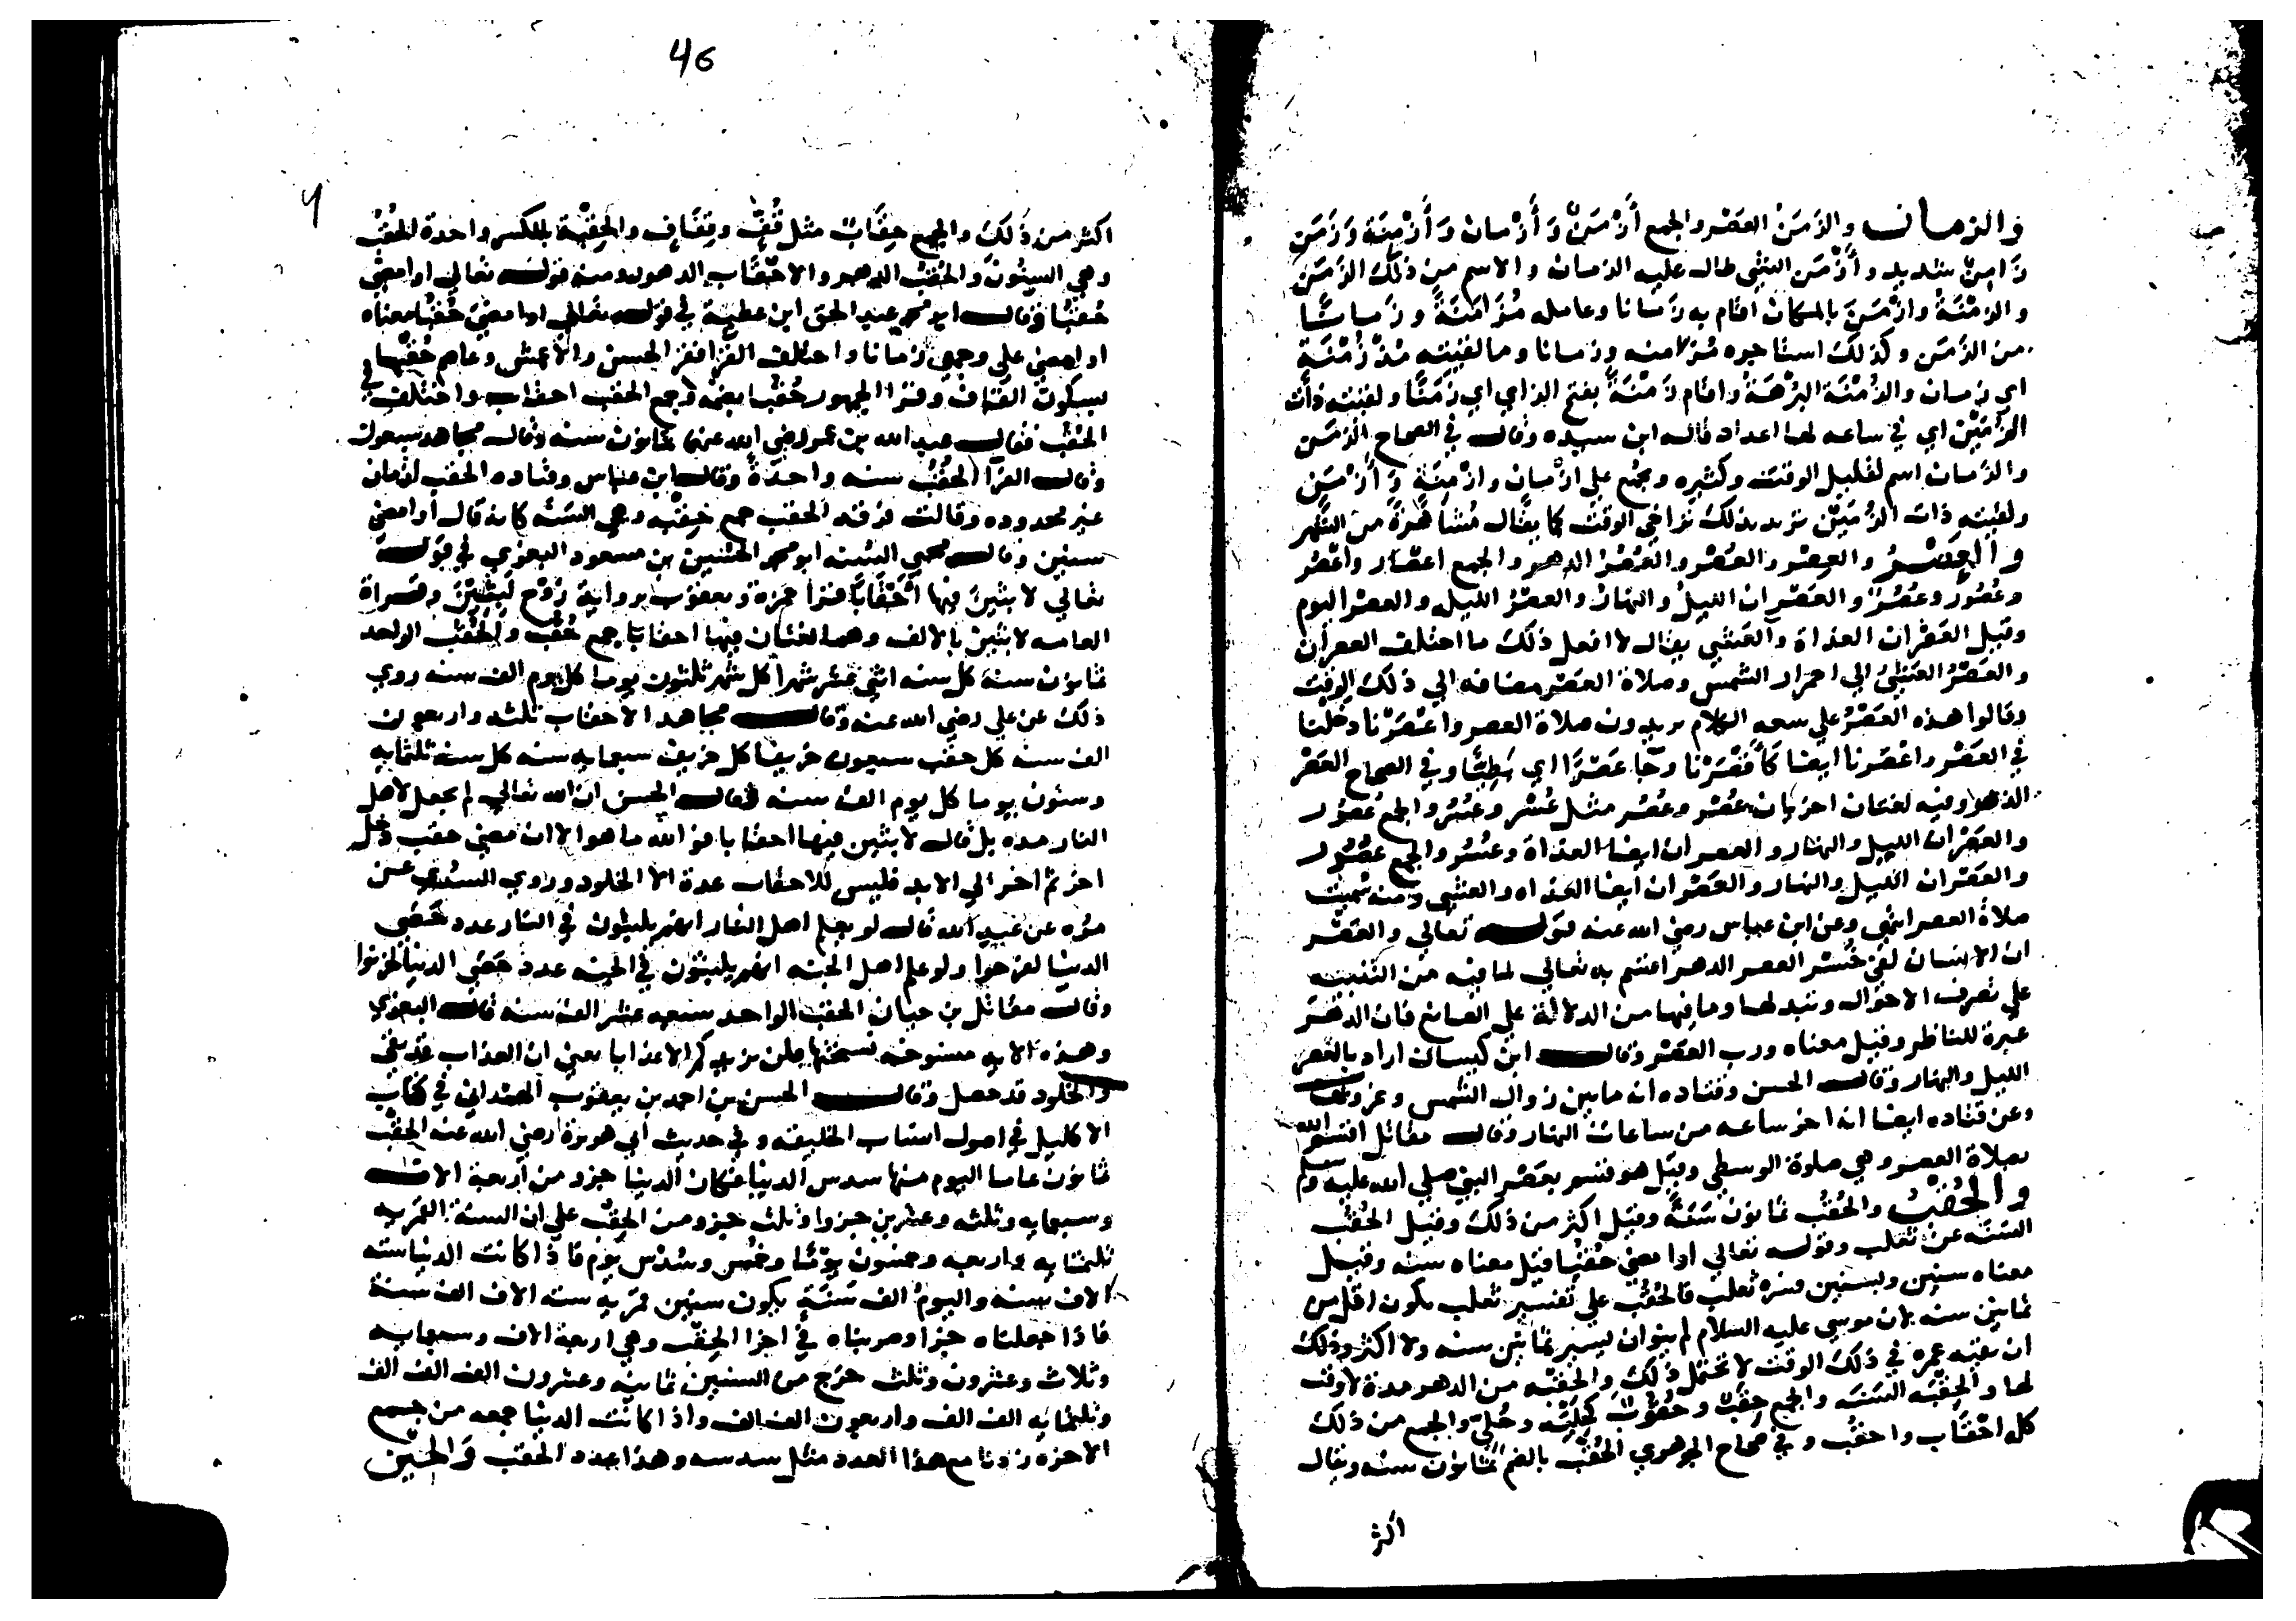 والزمان والزَمَنُ العَصْر والجمع أَزْمَنٌ وَأَزْمان وَأَزْمِنَة وَزَمَن
زَامِنٌ شديد وأَزْمَن الشي طال عليه الزمان والاسم من ذلك الزَمَن
والزمْنَةُ وازْمَنَ بالمكان اقام به زَمانا وعامله مُزَامَنَةً وزَمانًا
من الزَمَن وكذلك استاجره مُزامنه وزمانا وما لقيته مُذْ زُمْنَة
اي زمان والزُمْنَة البُرْهَةُ واقام زَمْنَةً بفتح الزاي اي زَمَنًا ولقيته ذات
الزُمَيْن اي في ساعه لها اعداد قاله ابن سيده وقال في الصحاح الزمَن
والزَمان اسم لقليل الوقت وكثيره ويجمع على ازْمان وازْمِنَة وَأَزْمُن
ولقيته ذات الزُمَيْن تريد بذلك تراخي الوقت كما يقال مُشاهَرةً من الشهر
والعَصْرُ والعِصْر والعُصْر والعُصُرُ الدهر والجمع اعصار واعْصُر
وعُصُور وعُصُرٌ والعَصْران الليلُ والنهار والعصْرُ الليل والعصْر اليوم
وقيل العَصْران الغداة والعَشي يقال لا افعل ذلك ما اختلف العصران
والعَصْرُ العَشِيُّ الي احمرار الشمس وصلاة العَصْر مضافه الي ذلك الوقت
وقالوا هذه العَصْرُ علي سعه الكلام يريدون صلاة العصر واعْتَصَرْنا دخلنا
في العَصْر واعْصَرنا ايضا كأَقْصَرْنا وجَا عَصْرًا اي بَطِيئًا وفي الصحاح العَصْر
الدهر وفيه لغتان اخريان عُصْر وعُصُر مثل عُسْر وعُسُر والجمع عصُور
والعَصْران الليل والنهار والعصران ايضا الغداة وعُسُر والجمع عُصُور
والعَصْران الليل والنهار والعَصْران ايضا الغداه والعشي ومنه سُمّيت
صلاة العصر انتهي وعن ابن عباس رضي الله عنه قوله تعالي والعَصْر
ان الانسان لفي خُسْر العصر الدهر اقسم به تعالي لما فيه من التنبيه
علي تصرف الاحوال وتبدلها وما فيها من الدلالة علي الصانع فان الدهر
عبرة للناظر وقيل معناه ورب العَصْر وقال ابن كيسان اراد بالعصر
الليل والنهار وقال الحسن وقتاده انه ما بين زوال الشمس وغروبها
وعن قتاده ايضا انه اخر ساعه من ساعات النهار وقال مقاتل اقسم الله
بصلاة العصر وهي صلوة الوسطي وقيل هو قسم بعَصْر النبي صلي الله عليه وسلم
والحُقْبُ والحُقُبُ ثمانون سَنَةً وقيل اكثر من ذلك وقيل الحُقْب
السَنَه عن ثعلب وقوله تعالي او امضي حُقُبًا قيل معناه سنه وقيل
معناه سنين وبسنين فسره ثعلب فالحُقُبُ علي تفسير ثعلب يكون اقل من
ثمانين سنه لان موسي عليه السلام لم ينو ان يسير ثمانين سنه ولا اكثر وذلك
ان بقيه عمره في ذلك الوقت لا تحتمل ذلك والحُقْبَه من الدهر مدة لا وقت
لها والحِقْبَه السَنَه والجمع حِقَبٌ وحُقُوْب كحِلْيَه وحُلِيّ والجمع من ذلك
كل احْقَاب واحقُب وفي صحاح الجوهري الحُقْب بالضم ثمانون سنه ويقال
اكثر
46
اكثر من ذَلك والجمع حِقَابٌ مثل قُفّ وقِفَاف والحِقْبَة بالكسر واحدة الحِقَب
وهي السنُون والحُقُبُ الدهر والاحْقَاب الدهور ومنه قوله تعالي او امضي
حُقُبًا وقال ابو محمد عبد الحق ابن عطية في قوله تعالي او امضيَ حُقُبًا معناه
او امضي علي وجهي زمانا واختلف القرا فقرا الحسن والاعمش وعاصم حُقْبًا
بسكون القاف وقرا الجمهور حُقُبا بضمه وجمع الحقب احقاب واختلف في
الحُقُب فقال عبد الله بن عمر رضي الله عنهما ثمانون سنه وقال مجاهد سبعون
وقال الفرّا الحُقُبُ سنه واحدَة وقال ابن عباس وقتاده الحقب زمان
غير محدوده وقالت فرقه الحقب جمع حِقْبَه وهي السَنَه كانه قال او امضي
سنين وقال محيي السُنه ابو محمد الحُسَين بن مسعود البغوي في قوله
تعالي لابثين فيها أَحْقَابًا قرا حمزة ويعقوب برواية رَوْح لَبِثِيْنَ وقراة
العامه لابثين بالالف وهما لغتان فيها احقابا جمع حُقُب والحُقُب الواحد
ثمانون سنة كل سنه اثني عشر شهرا كل شهر ثلثون يوما كل يوم الف سنه روي
ذلك عن علي رضي الله عنه وقال مجاهد الاحقاب ثلثه واربعون
الف سنه كل حقب سبعون خريفا كل خريف سبعمايه سنه كل سنه ثلثمايه
وستون يوما كل يوم الف سنه وقال الحسن ان الله تعالي لم يجعل لاهل
النار مده بل قال لابثين فيها احقابا فوالله ما هو الا ان مضي حقب دخل
اخر ثم اخر الي الابد فليس للاحقاب عدة الا الخلود وروي السُدّي عن
مرّه عن عبد الله قال لو يعلم اهل النار انهم يلبثون في النار عدد حَصَي
الدنيا لفرحوا ولو علم اهل الجنه انهم يلبثون في الجنه عدد حَصَي الدنيا لحزنوا
وقال مقاتل بن حيان الحقب الواحد سبعه عشر الف سنه قال البغوي
وهذه الايه منسوخه نسختها فلن نزيدكم الا عذابا يعني ان العذاب قد بقي
والخلود قد حصل وقال الحسن بن احمد بن يعقوب الهمداني في كتاب
الاكليل في اصول انساب الخليقه وفي حديث ابي هريرة رضي الله عنه الحقب
ثمانون عاما اليوم منها سدس الدنيا فكان الدنيا جزو من اربعة الاف
وسبعمايه وثلثه وعشرين جزوا وثلث جزو من الحِقْب علي ان السنة القمريه
ثلثمايه واربعه وخمسون يومًا وخُمْس وسُدْس يوم فاذا كانت الدنيا سته
الاف سنه واليومُ الف سَنَةٍ يكون سنين قمريه سته الاف الف سنة
فاذا جعلناه جزا وضربناه في اجزا الحِقْب وهي اربعة الاف وسبعمايه
وثلاث وعشرون وثلث خرج من السنين ثمانيه وعشرون الف الف الف
وثلثمايه الف الف واربعون الف الف واذا كانت الدنيا جمعه من جمع
الاخره زدنا مع هذا العدد مثل سدسه وهذا عدد الحقب وَالحِيْن